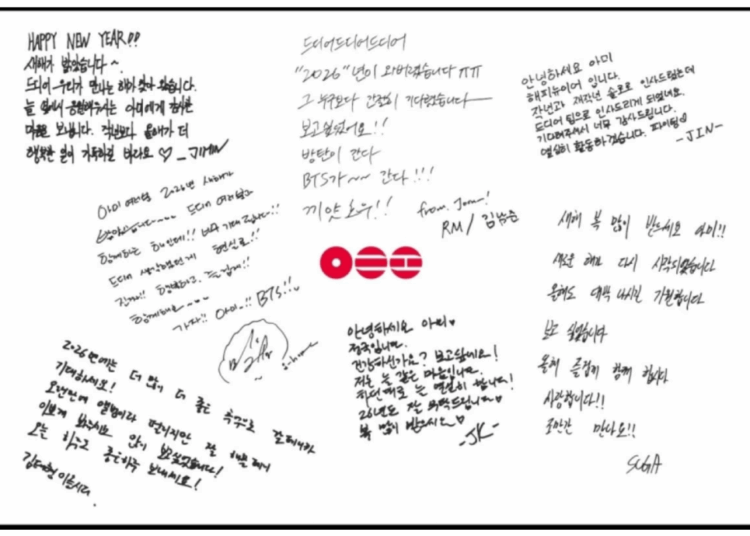 HAPPY NEW YEAR!!
새해가 밝았습니다~
드디어 우리가 만나는 해가 왔습니다.
늘 옆에서 응원해주시는 아미에게
마음 보냅니다. 작년보다 올해가 더
행복한 일이 가득하길 바라요 ♡ -JIMIN
드디어드디어드디어
"2026"년이 와버렸습니다 ㅠㅠ
그 누구보다 간절히 기다렸습니다
보고싶었어요!!
방탄이 간다
BTS가~~ 간다!!!
끼얏호우!!
from. Joon!
RM / 김남준
안녕하세요 아미
해피뉴이어 입니다.
작년과 재작년 솔로로 인사드렸는데
드디어 팀으로 인사드리게 되었네요.
기다려주셔서 너무 감사드립니다.
열심히 활동하겠습니다. 파이팅♡
-JIN-
아미 여러분 2026년 새해가
밝았습니다~~~ 드디어 여러분과
함께하는 해인데!! 너무 기대됩니다!!
드디어 생각했던게 현실로!!
건강하고, 즐겁게!!
함께해요~~~
가자!! 아미..!! BTS!!
j-hope
새해 복 많이 받으세요 아미!!
새로운 해로 다시 시작되었습니다
올해도 대박 나시길 기원합니다
보고 싶었습니다
올해 즐겁게 함께 합시다
사랑합니다!!
조만간 만나요!!
SUGA
안녕하세요 아미♥
정국입니다.
건강하신가요? 보고싶네요!
저는 늘 같은 마음입니다.
작년대로 늘 열심히 합니다!
26년도 잘 부탁드립니다♥
복 많이 받으세요♡
-JK-
2026년에는 더 많이 더 좋은 추억으로
기대하세요!
오랜만에 앨범이라 떨리지만 잘
이쁘게 봐주시고 많이 보고싶었습니다!
오늘 하루도 좋은하루 보내세요!
김태형 이었습니다.